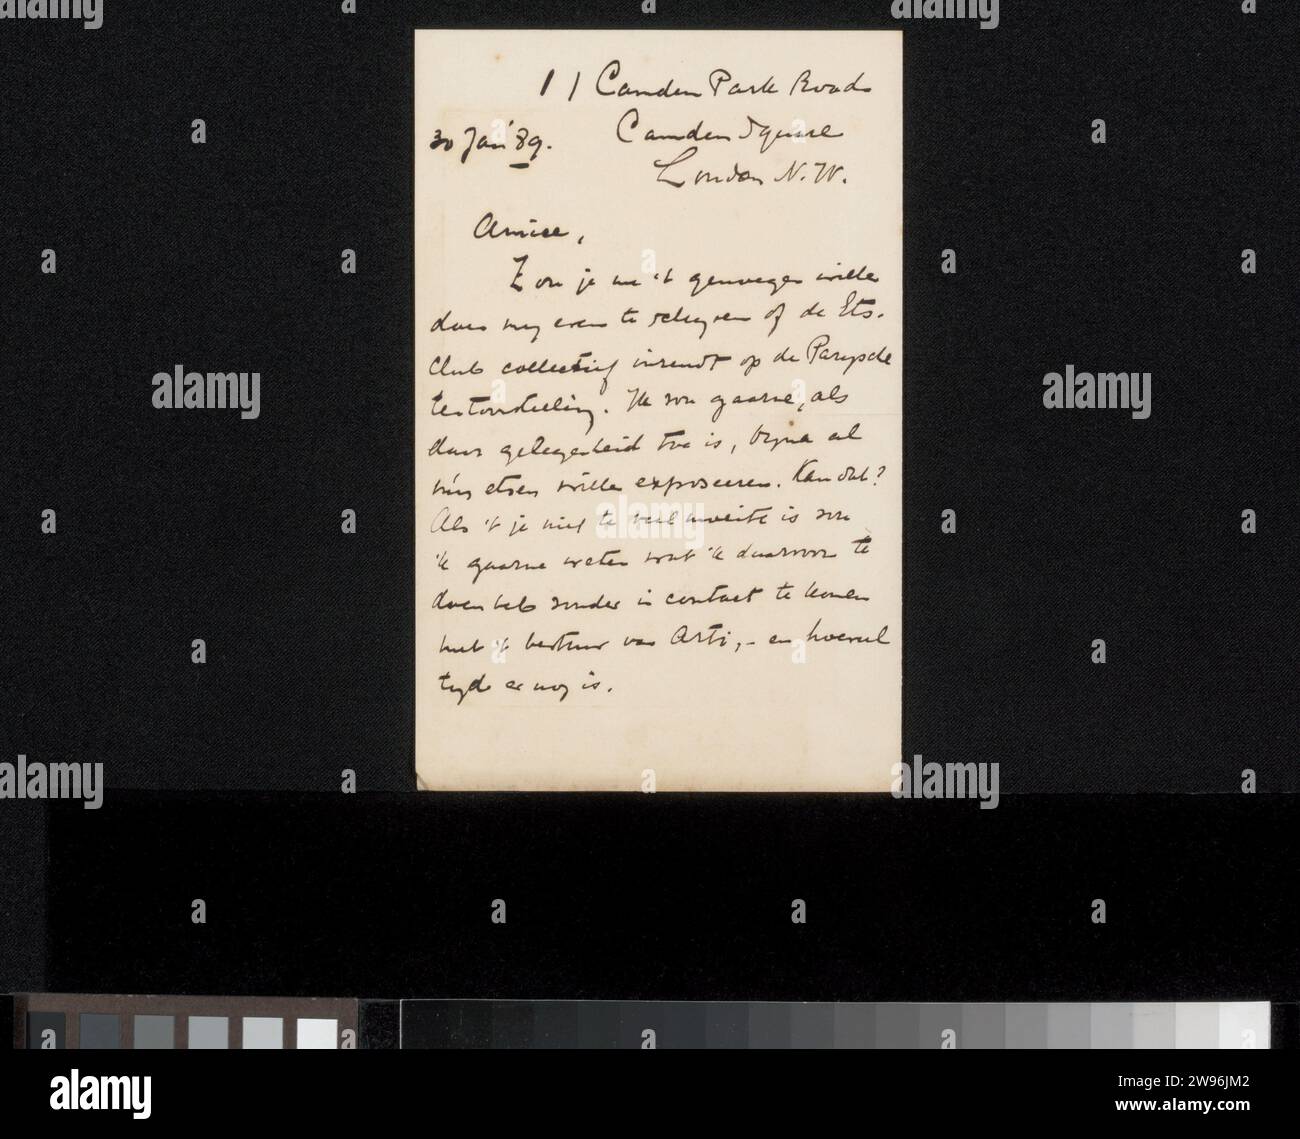 11 Camden Park Road
30 Jan '89.
Camden Square
London N.W.
Amice,
Zou je me 't genoegen willen
doen my even te schryven of de Ets-
Club collectief inzendt op de Parysche
tentoonstelling. Ik zou gaarne, als
daar gelegenheid toe is, byna al
myn etsen willen exposeeren. Kan dat?
Als 't je niet te veel moeite is zou
'k gaarne weten wat 'k daarvoor te
doen heb zonder in contact te komen
met 't bestuur van Arti, - en hoeveel
tyd er nog is.
alamy
Image ID: 2W96JM2
www.alamy.com